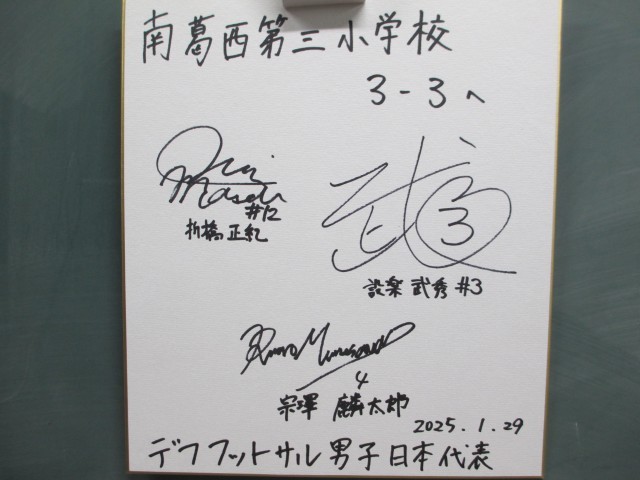 南葛西第三小学校
3-3へ
#12
折橋正紀
3
設楽 武秀 #3
4
宗澤 麟太郎
2025.1.29
デフフットサル男子日本代表